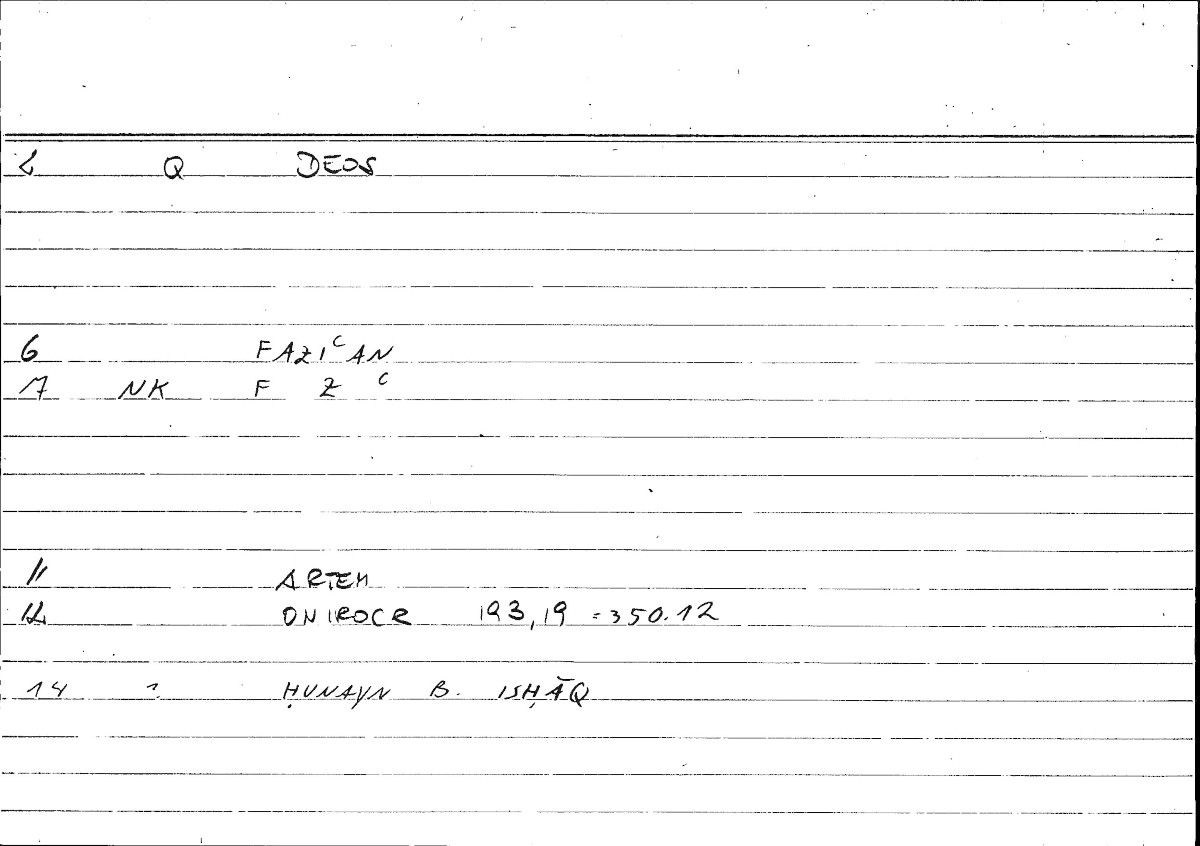 2 Q DEOS
6 FAZIᶜAN
7 NK F Z ᶜ
11 ARTEM
12 ONIROCR 193,19 = 350.12
14 ? ḤUNAYN B. ISḤĀQ